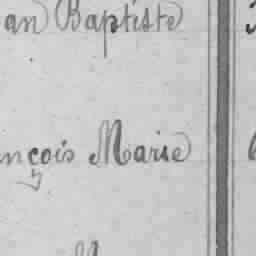 an Baptiste
nçois Marie